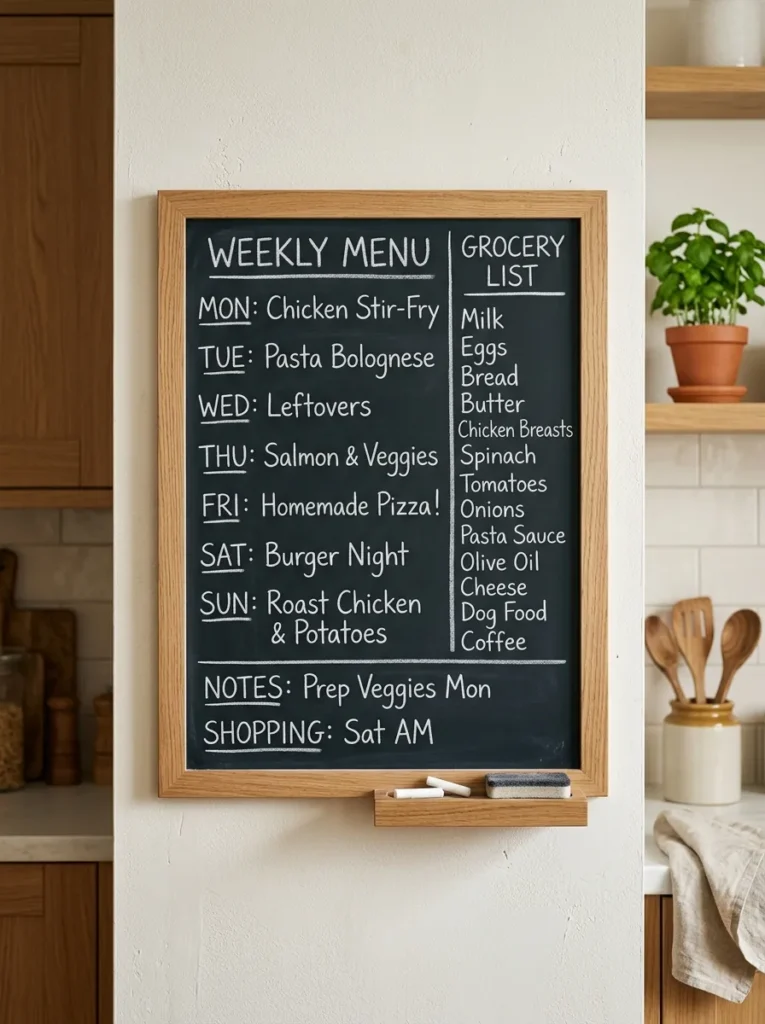 WEEKLY MENU
MON: Chicken Stir-Fry
TUE: Pasta Bolognese
WED: Leftovers
THU: Salmon & Veggies
FRI: Homemade Pizza!
SAT: Burger Night
SUN: Roast Chicken
& Potatoes
GROCERY
LIST
Milk
Eggs
Bread
Butter
Chicken Breasts
Spinach
Tomatoes
Onions
Pasta Sauce
Olive Oil
Cheese
Dog Food
Coffee
NOTES: Prep Veggies Mon
SHOPPING: Sat AM